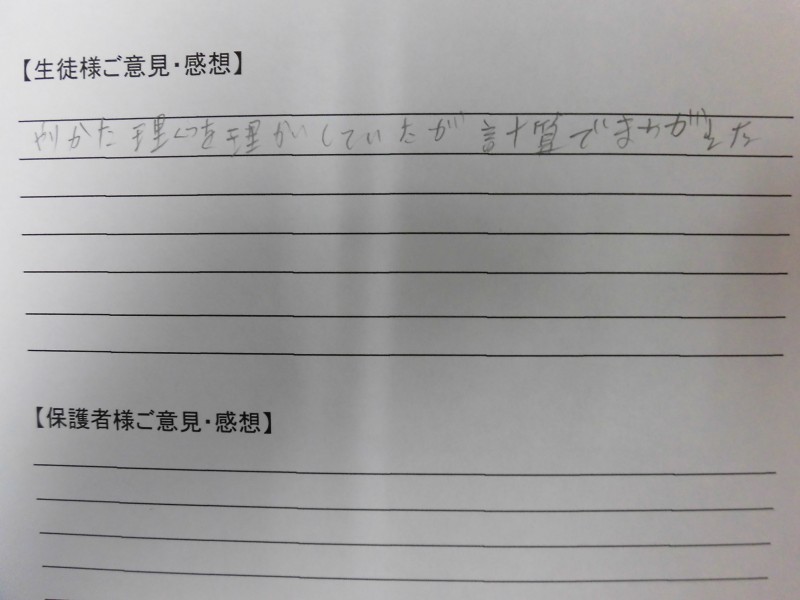 【生徒様ご意見・感想】
やりかた理くつを理かいしていたが計算でまちがえた
【保護者様ご意見・感想】